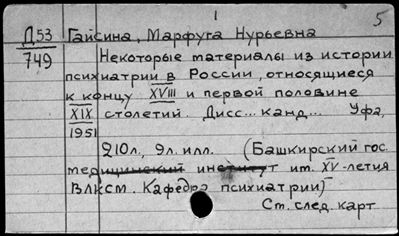 1
5
Д53 Гайсина, Марфуга Нурьевна
749 Некоторые материалы из истории
психиатрии в России, относящиеся
к концу XVIII и первой половине
XIX столетий. Дисс... канд... Уфа,
1951
210л., 9л. илл. (Башкирский гос.
медицинский институт им. XV-летия
ВЛКСМ. Кафедра психиатрии)
См. след. карт